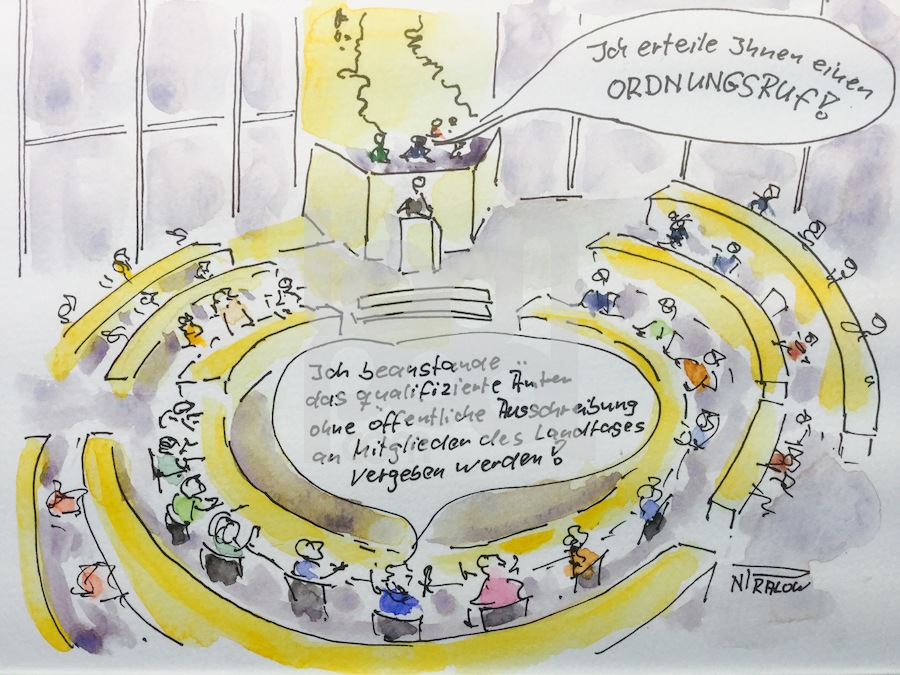 Ich erteile Ihnen einen
ORDNUNGSRUF!
Ich beanstande
das qualifizierte Ämter
ohne öffentliche Ausschreibung
an Mitglieder des Landtages
vergeben werden!
N! RALOW